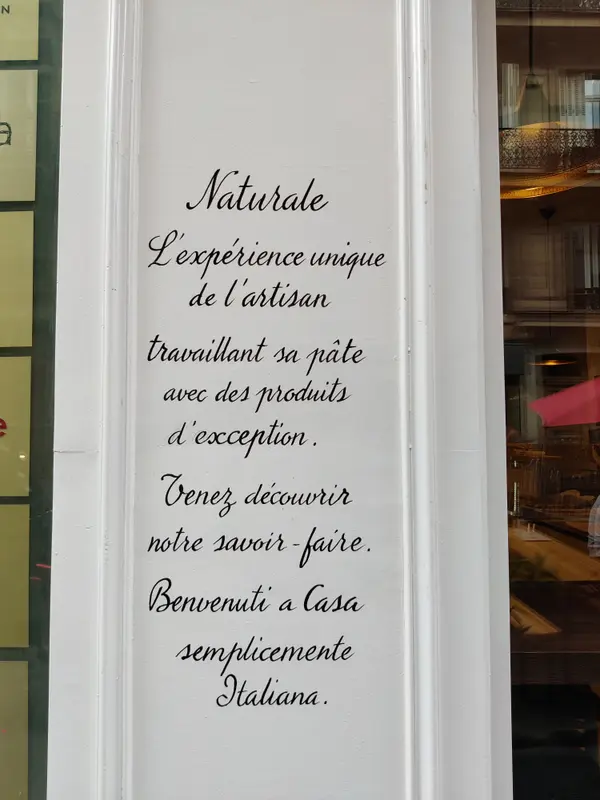 Naturale
L'expérience unique
de l'artisan
travaillant sa pâte
avec des produits
d'exception.
Venez découvrir
notre savoir-faire.
Benvenuti a Casa
semplicemente
Italiana.